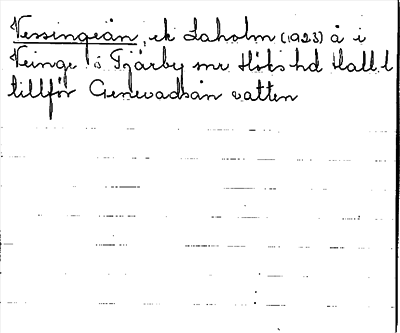 Vessingeån, ek Laholm (1923) å i
Veinge o Tjärby snr Höks hd Hall.l
tillför Genevadsån vatten